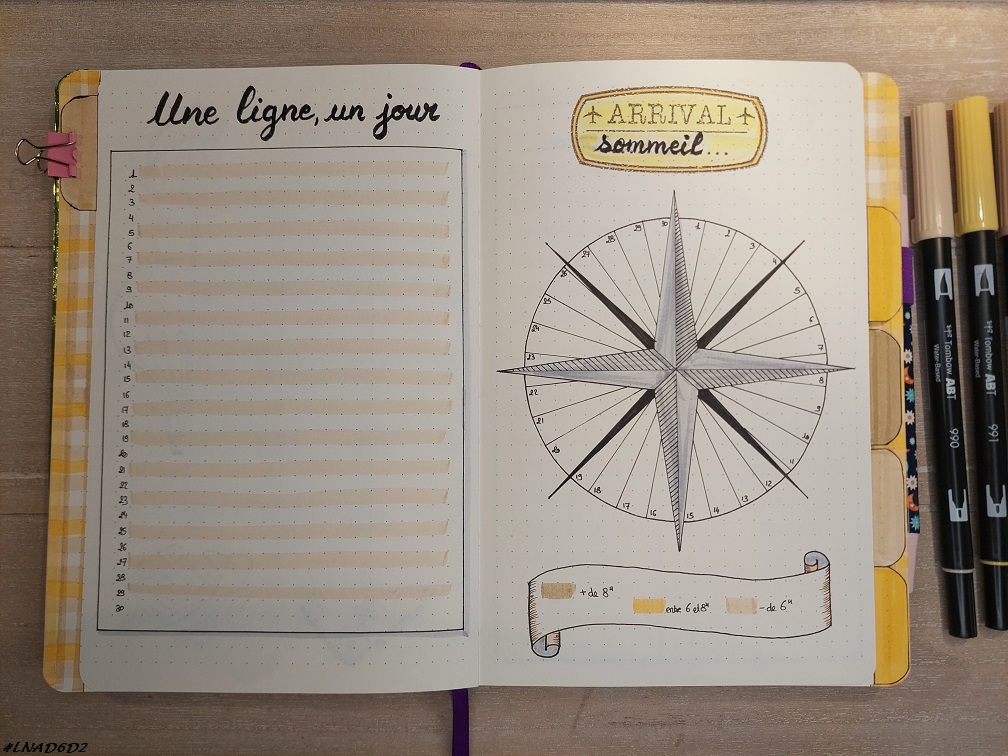 Une ligne, un jour
1
2
3
4
5
6
7
8
9
10
11
12
13
14
15
16
17
18
19
20
21
22
23
24
25
26
27
28
29
30
ARRIVAL
sommeil...
30
1
2
3
4
5
6
7
8
9
10
11
12
13
14
15
16
17
18
19
22
23
24
25
26
27
28
29
+ de 8h
entre 6 et 8h
- de 6h
Tombow ABT
Water-Based
990
Tombow ABT
Water-Based
991
#LNAD6D2